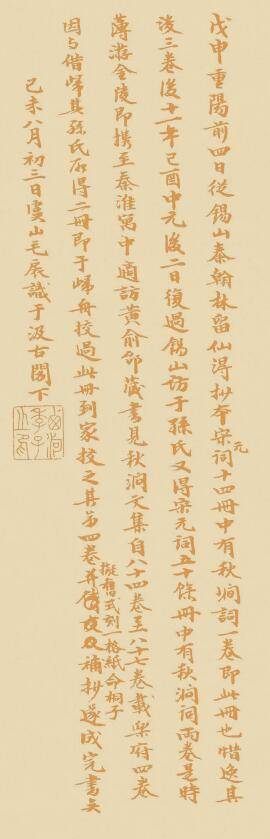 戊申重陽前四日從錫山秦翰林留仙得抄本宋元詞十四冊中有秋澗詞一卷即此冊也惜逸其
後三卷後十一年己酉中元後二日復過錫山訪于孫氏又得宋元詞五十餘冊中有秋澗詞兩卷是時
薄游金陵即攜至秦淮寓中適訪黃俞邰藏書見秋澗文集自八十四卷至八十七卷載樂府四卷
因与借歸其孫氏所得二冊即于歸舟校過此冊到家校之其第四卷擬舊式刻一格紙命桐子補抄遂成完書矣
己未八月初三日虞山毛扆識于汲古閣下